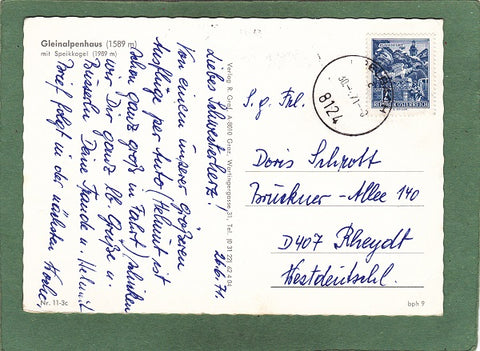 Gleinalpenhaus (1589 m)
mit Speikkogel (1989 m)
20.6.71.
Liebes Schwesterherz!
Von einem unserer größeren
Ausflüge per Auto (Helmut ist
schon ganz groß in Fahrt) schicken
wir Dir ganz lb. Grüße u.
Busserln Deine Traude u. Helmut
Brief folgt in der nächsten Woche.
Nr. 11-3c
Verlag R. Graf, A-8010 Graz, Tel. (0 31 22) 62 4 04
8124
S. g. Frl.
Doris Schrott
Brückner-Allee 140
D407 Rheydt
Westdeutschl.
bph 9